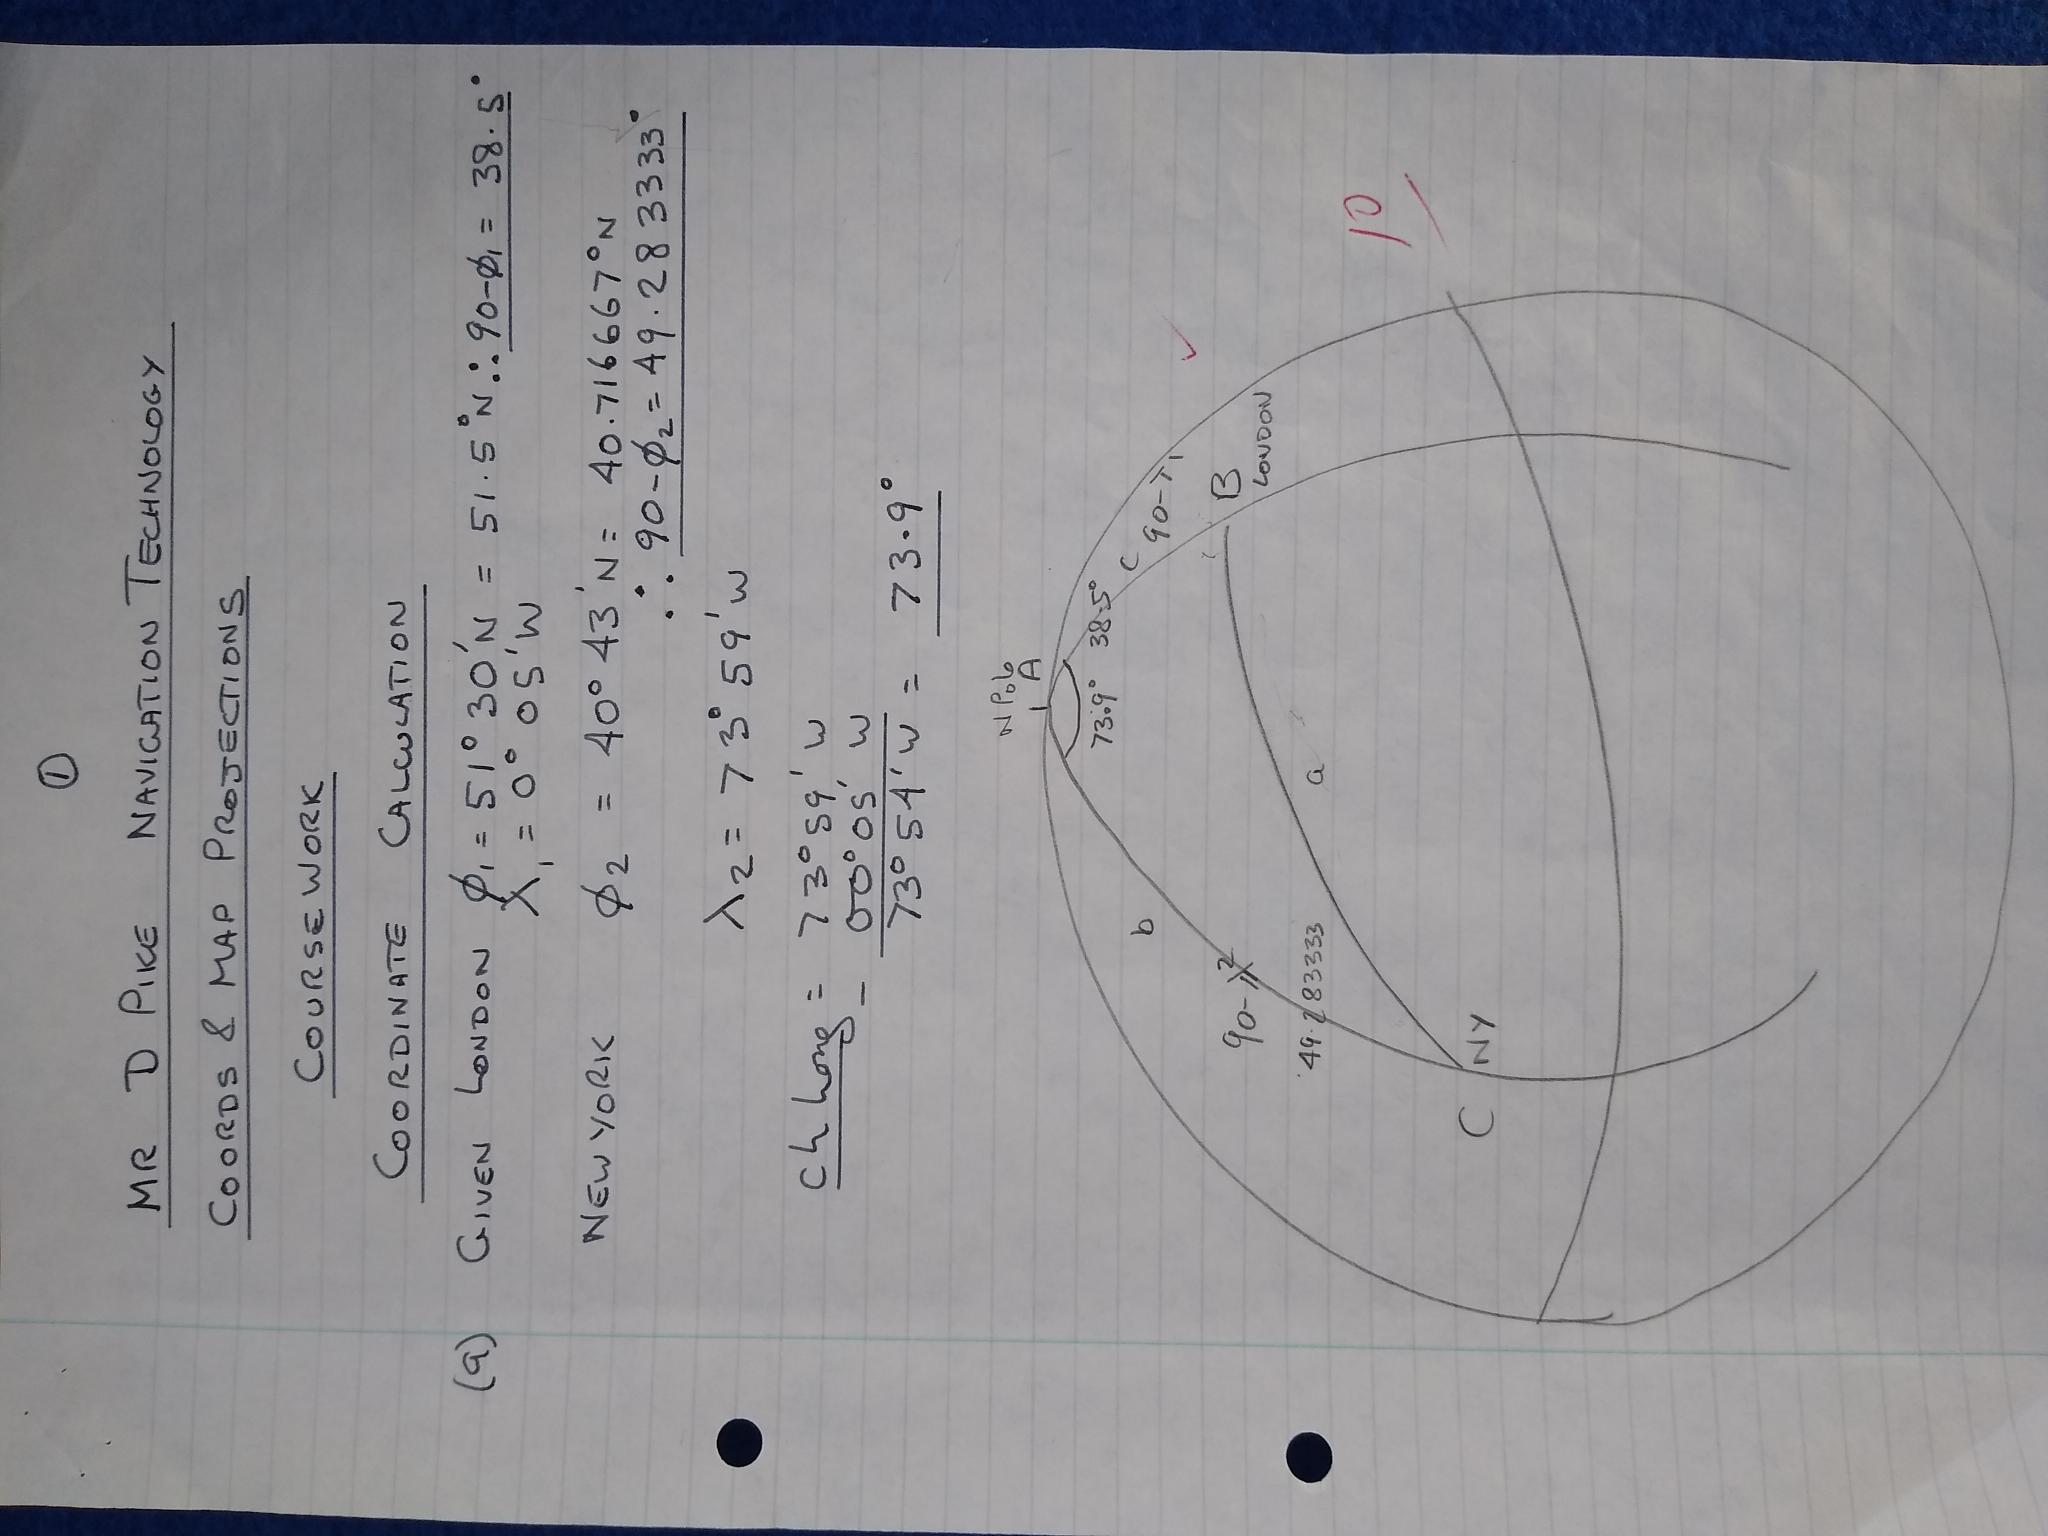 ①
MR D PIKE NAVIGATION TECHNOLOGY
COORDS & MAP PROJECTIONS
COURSEWORK
COORDINATE CALCULATION
(a) GIVEN LONDON φ₁ = 51° 30'N = 51.5°N ∴ 90-φ₁ = 38.5°
λ₁ = 0° 05'W
NEW YORK φ₂ = 40° 43'N = 40.716667°N
∴ 90-φ₂ = 49.283333°
λ₂ = 73° 59'W
ch Long = 73° 59'W
- 00° 05'W
73° 54'W = 73.9°
N Pole
A
73.9° 38.5°
c 90-
B
LONDON
b
90-
49.283333
a
C NY
10